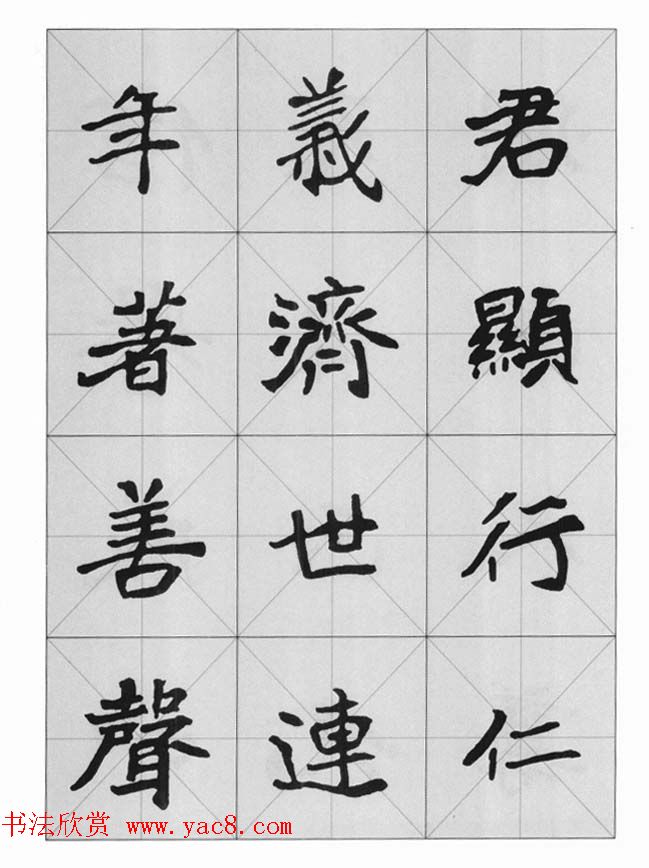 君顯行仁
義濟世連
年著善聲
书法欣赏 www.yac8.com